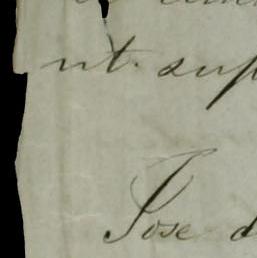 ut. sup
Jose d